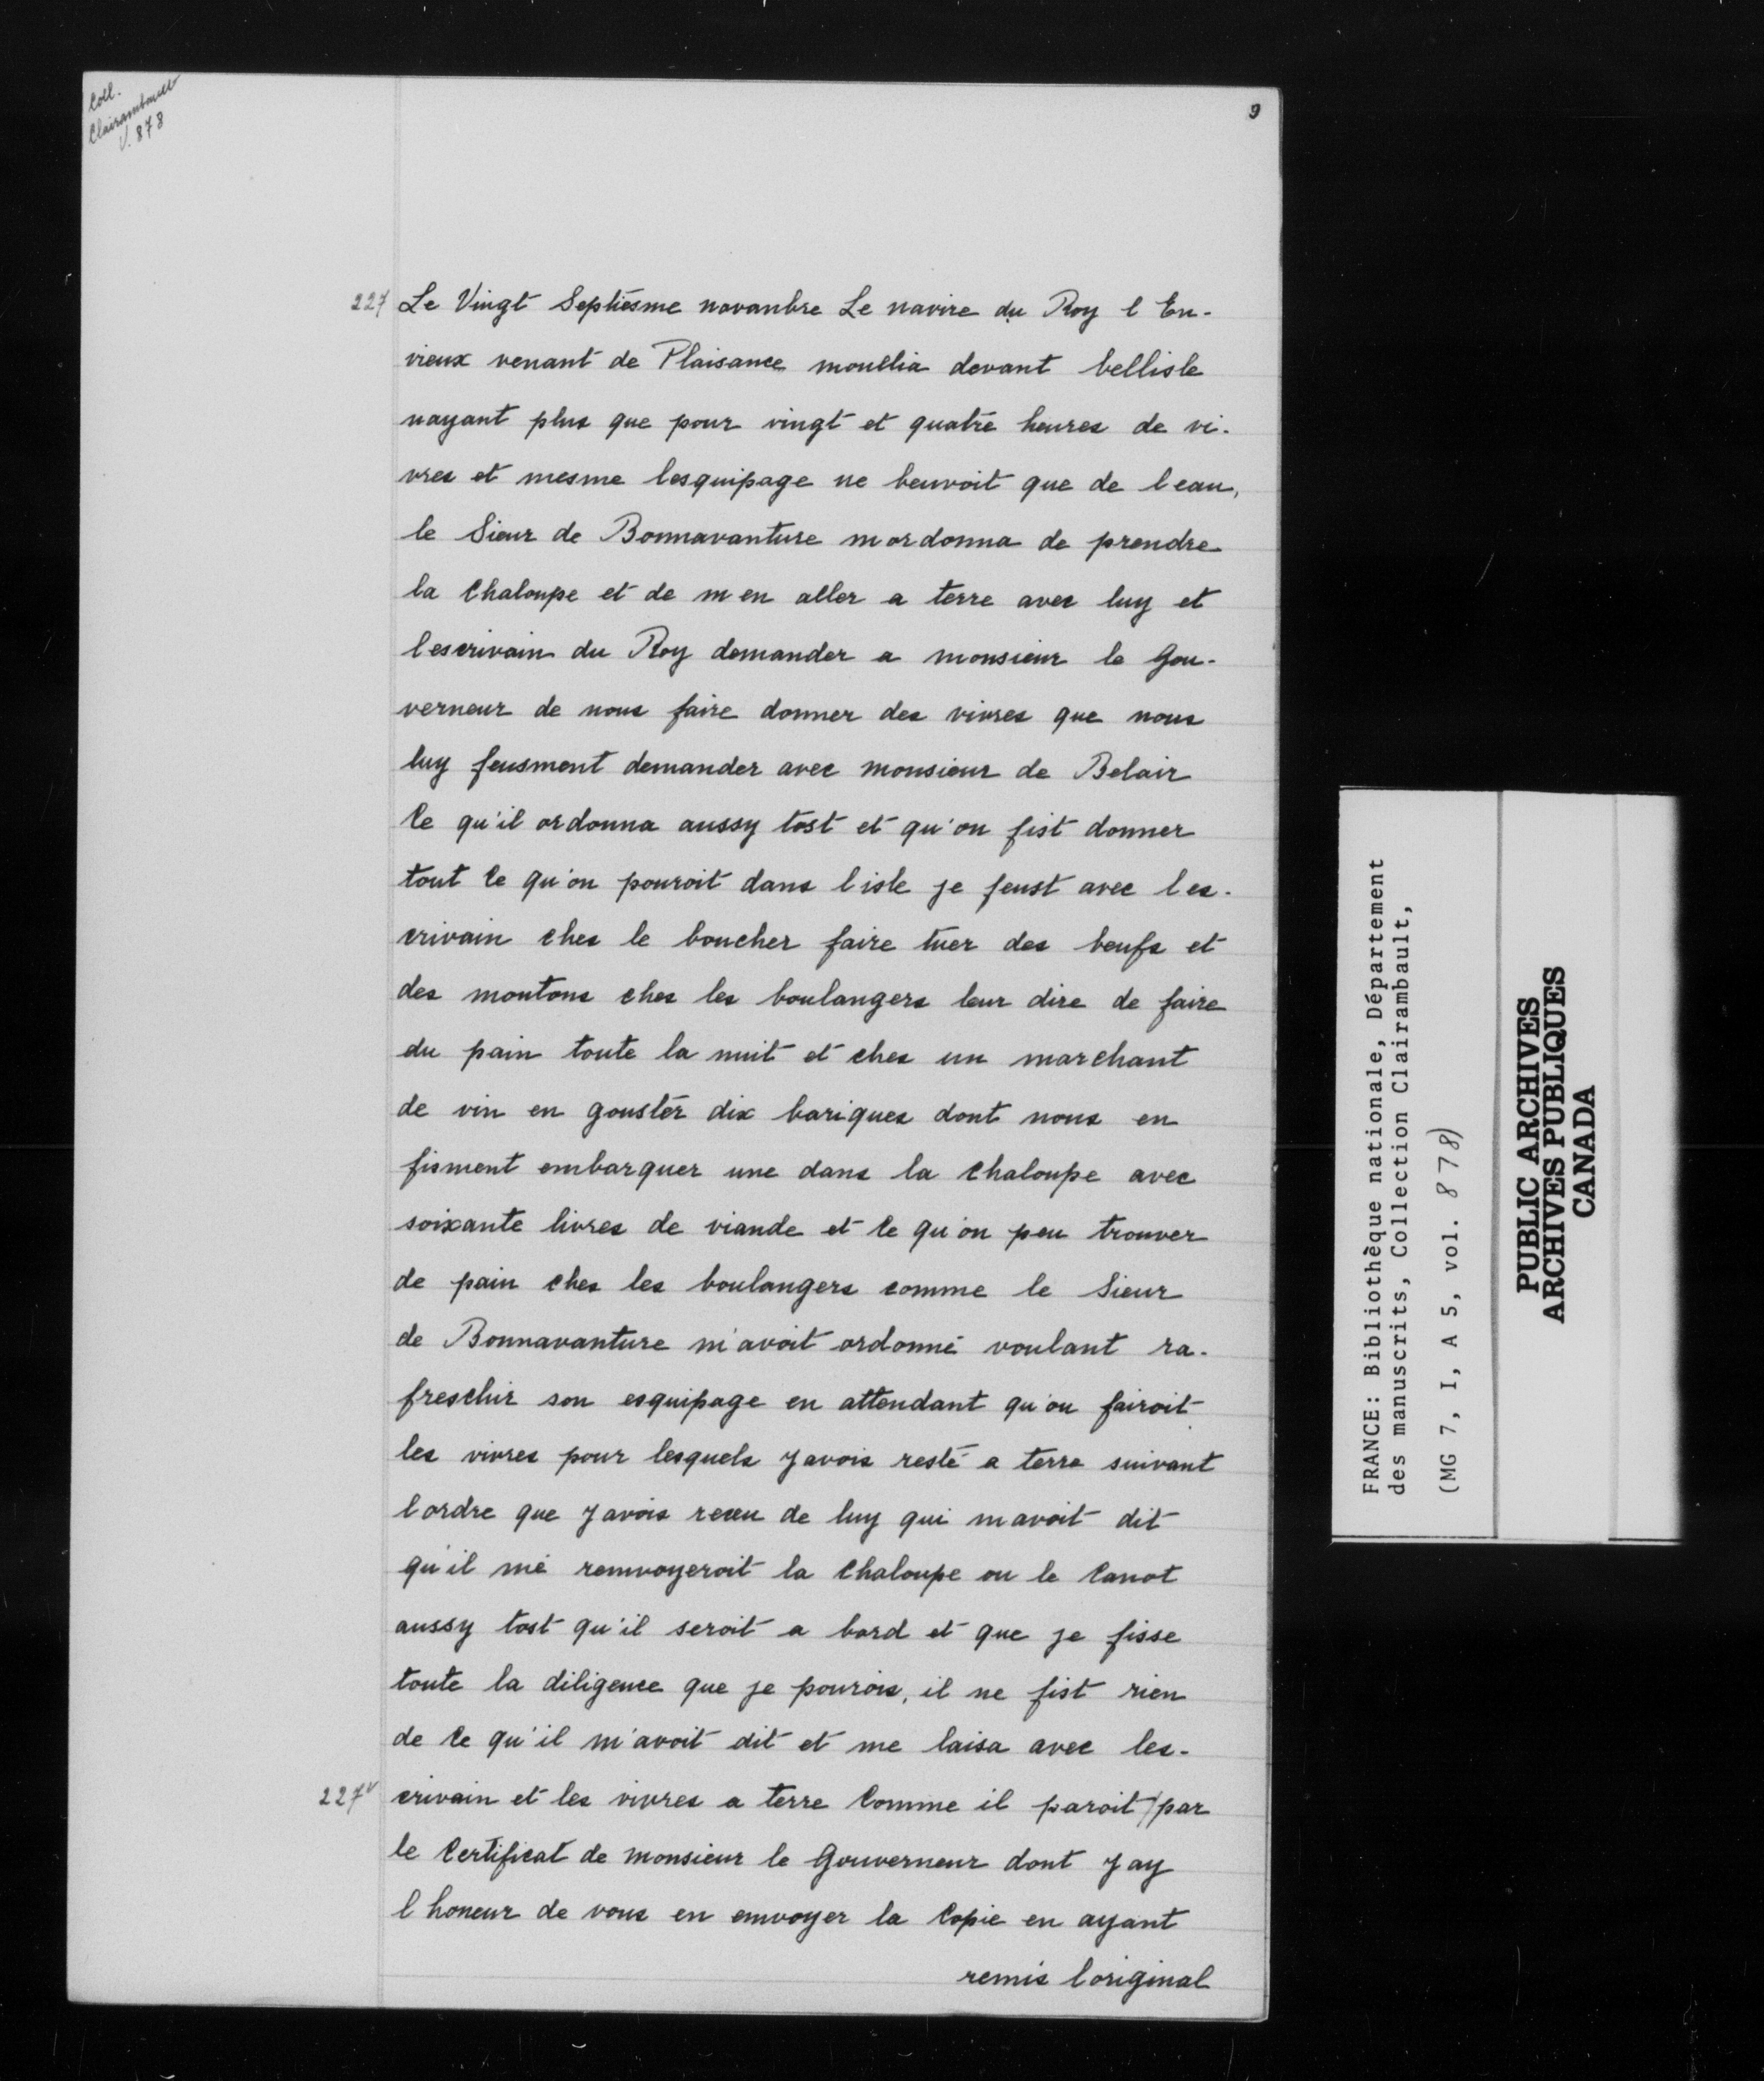 Coll.
Clairambault
V. 878
9
227 Le Vingt Septiesme novanbre Le navire du Roy l En-
vieux venant de Plaisance mouллia devant bellisle
nayant plus que pour vingt et quatre heures de vi-
vres et mesme lesquipage ne beuvoit que de leau,
le Sieur de Bonnavanture mordonna de prendre
la Chaloupe et de m en aller a terre avec luy et
lescrivain du Roy demander a monsieur le Gou-
verneur de nous faire donner des vivres que nous
luy feusment demander avec monsieur de Belair
Ce qu'il ordonna aussy tost et qu'on fist donner
tout Ce qu'on pouroit dans l isle je feust avec les-
crivain ches le boucher faire tuer des beufs et
des moutons ches les boulangers leur dire de faire
du pain toute la nuit et ches un marchant
de vin en gouster dix bariques dont nous en
fisment embarquer une dans la Chaloupe avec
soixante livres de viande et Ce qu'on peu trouver
de pain ches les boulangers comme le Sieur
de Bonnavanture m'avoit ordonné voulant ra-
freschir son esquipage en attendant qu'on fairoit
les vivres pour lesquels Javois resté a terre suivant
lordre que Javois receu de luy qui mavoit dit
qu'il me renvoyeroit la Chaloupe ou le Canot
aussy tost qu'il seroit a bord et que je fisse
toute la diligence que je pourois, il ne fist rien
de Ce qu'il m'avoit dit et me laisa avec les-
227v crivain et les vivres a terre Comme il paroit / par
le Certificat de monsieur le Gouverneur dont Jay
l honeur de vous en envoyer la Copie en ayant
remis loriginal
FRANCE: Bibliothèque nationale, Département
des manuscrits, Collection Clairambault,
(MG 7, I, A 5, vol. 878)
PUBLIC ARCHIVES
ARCHIVES PUBLIQUES
CANADA